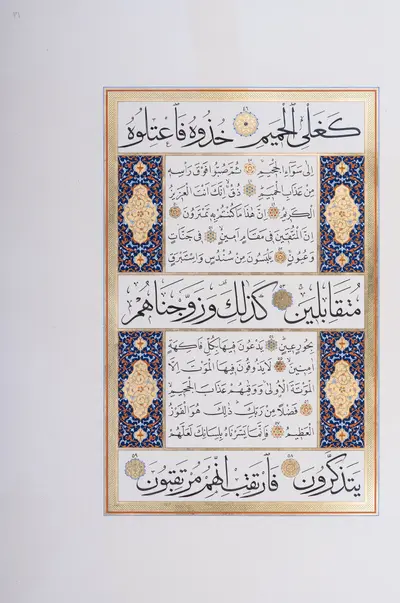 ٣١
كَغَلْىِ ٱلْحَمِيمِ ٤٦ خُذُوهُ فَٱعْتِلُوهُ
إِلَىٰ سَوَاءِ ٱلْجَحِيمِ ثُمَّ صُبُّوا فَوْقَ رَأْسِهِ
مِنْ عَذَابِ ٱلْحَمِيمِ ذُقْ إِنَّكَ أَنْتَ ٱلْعَزِيزُ
ٱلْكَرِيمُ إِنَّ هَٰذَا مَا كُنْتُمْ بِهِ تَمْتَرُونَ
إِنَّ ٱلْمُتَّقِينَ فِى مَقَامٍ أَمِينٍ فِى جَنَّاتٍ
وَعُيُونٍ يَلْبَسُونَ مِنْ سُنْدُسٍ وَإِسْتَبْرَقٍ
مُتَقَابِلِينَ كَذَٰلِكَ وَزَوَّجْنَاهُمْ
بِحُورٍ عِينٍ يَدْعُونَ فِيهَا بِكُلِّ فَاكِهَةٍ
آمِنِينَ لَا يَذُوقُونَ فِيهَا ٱلْمَوْتَ إِلَّا
ٱلْمَوْتَةَ ٱلْأُولَىٰ وَوَقَٰهُمْ عَذَابَ ٱلْجَحِيمِ
فَضْلًا مِنْ رَبِّكَ ذَٰلِكَ هُوَ ٱلْفَوْزُ
ٱلْعَظِيمُ فَإِنَّمَا يَسَّرْنَاهُ بِلِسَانِكَ لَعَلَّهُمْ
يَتَذَكَّرُونَ ٥٨ فَٱرْتَقِبْ إِنَّهُمْ مُرْتَقِبُونَ ٥٩